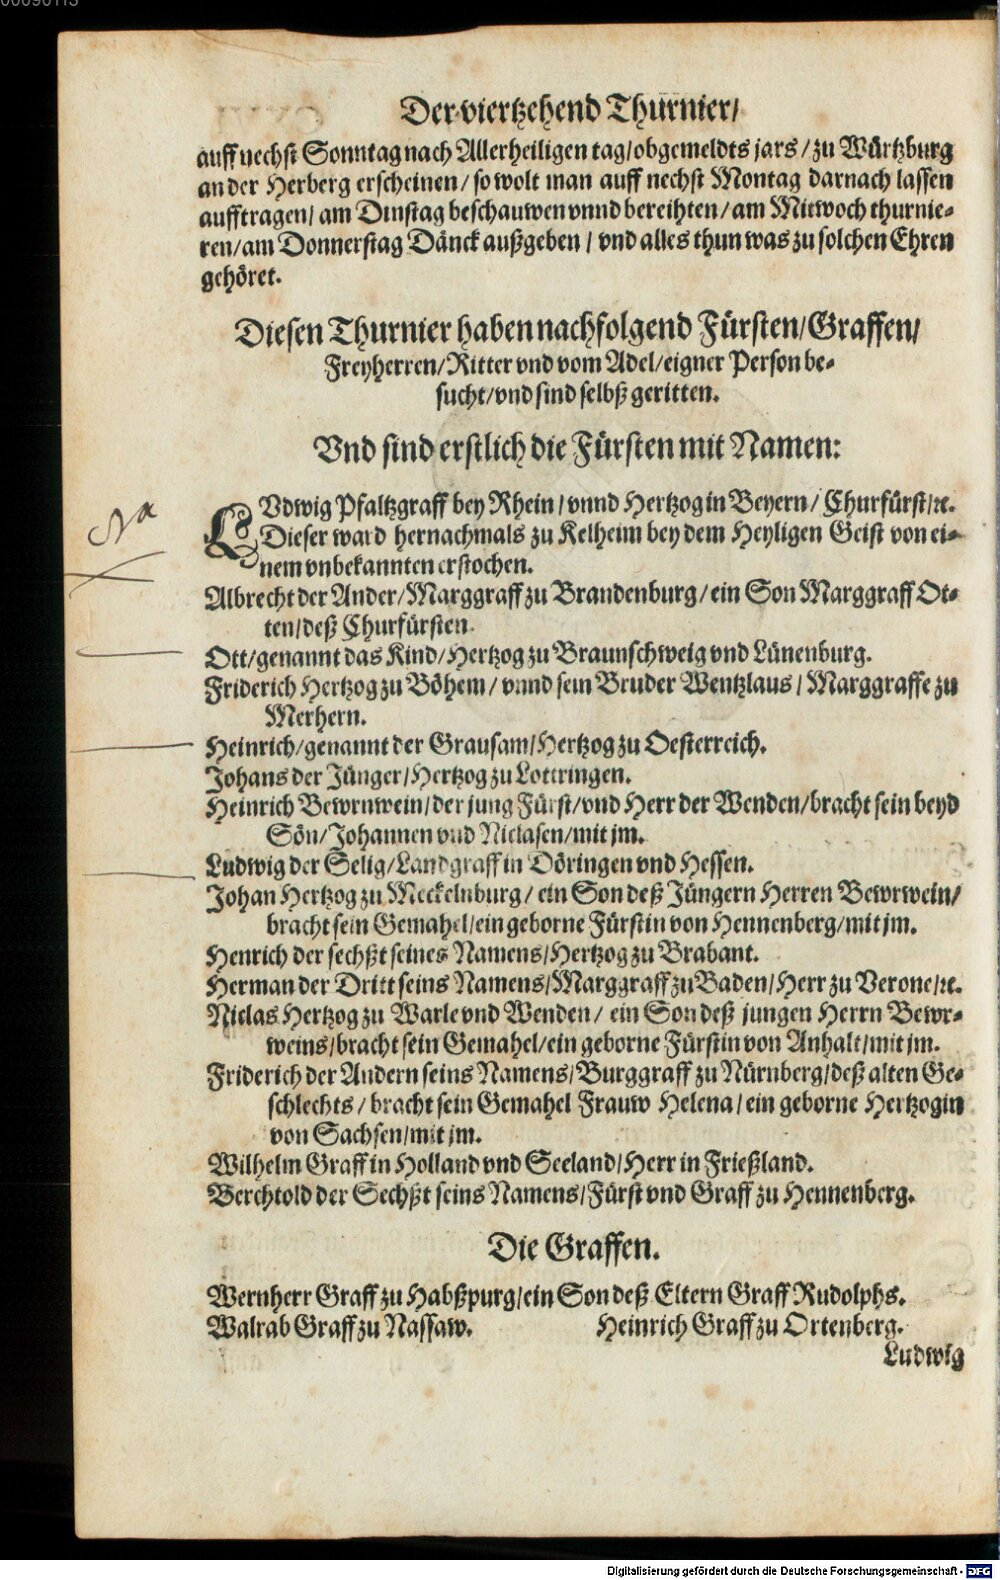 00090113
Der viertzehend Thurnier/
auff nechst Sonntag nach Allerheiligen tag/obgemeldts jars/zu Würtzburg
an der Herberg erscheinen/so wolt man auff nechst Montag darnach lassen
aufftragen/am Dinstag beschauwen vnnd bereihten/am Mitwoch thurnie-
ren/am Donnerstag Dänck außgeben/vnd alles thun was zu solchen Ehren
gehöret.
Diesen Thurnier haben nachfolgend Fürsten/Graffen/
Freyherren/Ritter vnd vom Adel/eigner Person be-
sucht/vnd sind selbß geritten.
Vnd sind erstlich die Fürsten mit Namen:
Na
LVdwig Pfaltzgraff bey Rhein/vnnd Hertzog in Beyern/Churfürst/ꝛc.
Dieser ward hernachmals zu Kelheim bey dem Heyligen Geist von ei-
nem vnbekannten erstochen.
Albrecht der Ander/Marggraff zu Brandenburg/ein Son Marggraff Ot-
ten/deß Churfürsten.
Ott/genannt das Kind/Hertzog zu Braunschweig vnd Lünenburg.
Friderich Hertzog zu Böhem/vnnd sein Bruder Wentzlaus/Marggraffe zu
Merhern.
Heinrich/genannt der Grausam/Hertzog zu Oesterreich.
Johans der Jünger/Hertzog zu Lottringen.
Heinrich Bewrnwein/der jung Fürst/vnd Herr der Wenden/bracht sein beyd
Sön/Johannen vnd Niclasen/mit jm.
Ludwig der Selig/Landgraff in Döringen vnd Hessen.
Johan Hertzog zu Meckelnburg/ein Son deß Jüngern Herren Bewrwein/
bracht sein Gemahel/ein geborne Fürstin von Hennenberg/mit jm.
Henrich der sechßt seines Namens/Hertzog zu Brabant.
Herman der Dritt seins Namens/Marggraff zu Baden/Herr zu Verone/ꝛc.
Niclas Hertzog zu Warle vnd Wenden/ein Son deß jungen Herrn Bewr-
weins/bracht sein Gemahel/ein geborne Fürstin von Anhalt/mit jm.
Friderich der Andern seins Namens/Burggraff zu Nürnberg/deß alten Ge-
schlechts/bracht sein Gemahel Frauw Helena/ein geborne Hertzogin
von Sachsen/mit jm.
Wilhelm Graff in Holland vnd Seeland/Herr in Frießland.
Berchtold der Sechßt seins Namens/Fürst vnd Graff zu Hennenberg.
Die Graffen.
Wernherr Graff zu Habßpurg/ein Son deß Eltern Graff Rudolphs.
Walrab Graff zu Nassaw. Heinrich Graff zu Ortenberg.
Ludwig
Digitalisierung gefördert durch die Deutsche Forschungsgemeinschaft - DFG